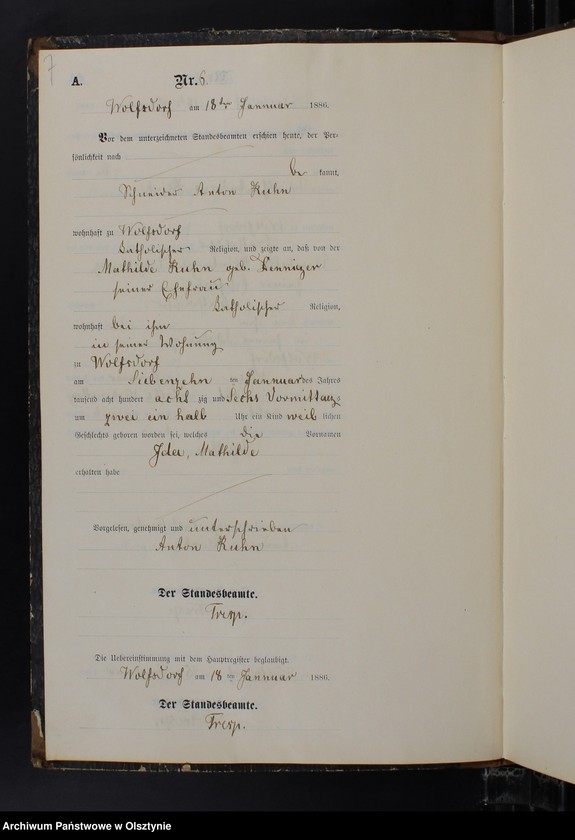 7
A. Nr. 6.
Wolfsdorf am 18ten Jannuar 1886.
Vor dem unterzeichneten Standesbeamten erschien heute, der Per-
sönlichkeit nach
be kannt,
Schneider Anton Kuhn
wohnhaft zu Wolfsdorf
katholischer Religion, und zeigte an, daß von der
Mathilde Kuhn geb.
seiner Ehefrau
katholischer Religion,
wohnhaft bei ihm
in seiner Wohnung
zu Wolfsdorf
am Siebenzehn ten Jannuar des Jahres
tausend acht hundert acht zig und Sechs Vormittags
um zwei ein halb Uhr ein Kind weib lichen
Geschlechts geboren worden sei, welches die Vornamen
Ida, Mathilde
erhalten habe
Vorgelesen, genehmigt und unterschrieben
Anton Kuhn
Der Standesbeamte.
Tresp.
Die Uebereinstimmung mit dem Hauptregister beglaubigt.
Wolfsdorf am 18 ten Jannuar 1886.
Der Standesbeamte.
Tresp.
Archiwum Państwowe w Olsztynie